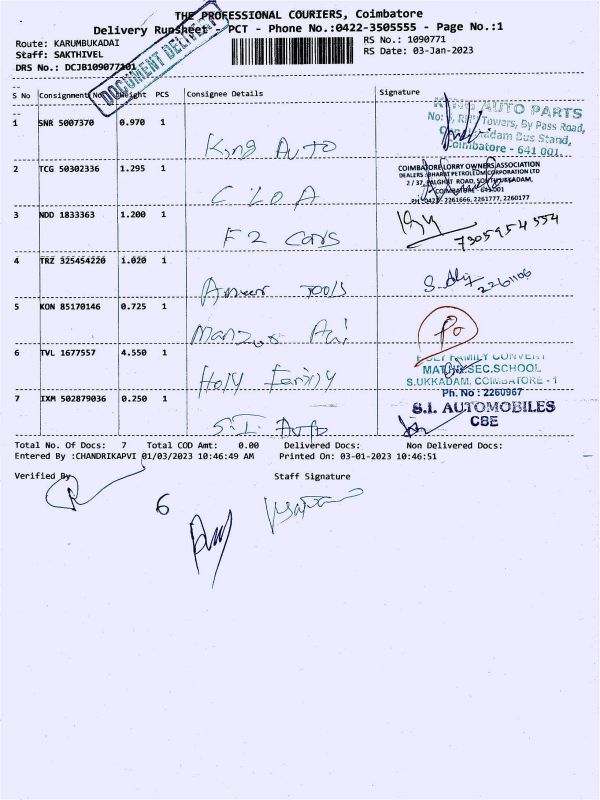 THE PROFESSIONAL COURIERS, Coimbatore
Delivery Runsheet - PCT - Phone No.:0422-3505555 - Page No.:1
Route: KARUMBUKADAI
RS No.: 1090771
Staff: SAKTHIVEL
RS Date: 03-Jan-2023
DRS No.: DCJB1090771
DOCUMENT DELIVERY
S No Consignment No Weight PCS Consignee Details Signature
1 SNR 5007370 0.970 1 King Auto
KING AUTO PARTS
Towers, By Pass Road,
Bus Stand,
Coimbatore - 641 001.
2 TCG 50302336 1.295 1 CLOA
COIMBATORE LORRY OWNERS ASSOCIATION
DEALERS : BHARAT PETROLEUM CORPORATION LTD
2 / 37, PALGHAT ROAD, SOUTH UKKADAM,
COIMBATORE - 641 001
PH : 0422 - 2261666, 2261777, 2260177
3 NDD 1833363 1.200 1 F2 Cars
7305954554
4 TRZ 325454220 1.020 1 Ameer Tools
2261106
5 KON 85170146 0.725 1
6 TVL 1677557 4.550 1 Holy Family
HOLY FAMILY CONVENT
MATHR.SEC.SCHOOL
S.UKKADAM, COIMBATORE - 1
Ph. No : 2260967
7 IXM 502879036 0.250 1 S.I. Auto
S.I. AUTOMOBILES
CBE
Total No. Of Docs: 7 Total COD Amt: 0.00 Delivered Docs: Non Delivered Docs:
Entered By :CHANDRIKAPVI 01/03/2023 10:46:49 AM Printed On: 03-01-2023 10:46:51
Verified By Staff Signature
6